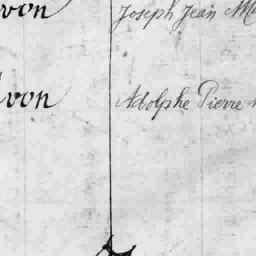 von Joseph Jean
von Adolphe Pierre